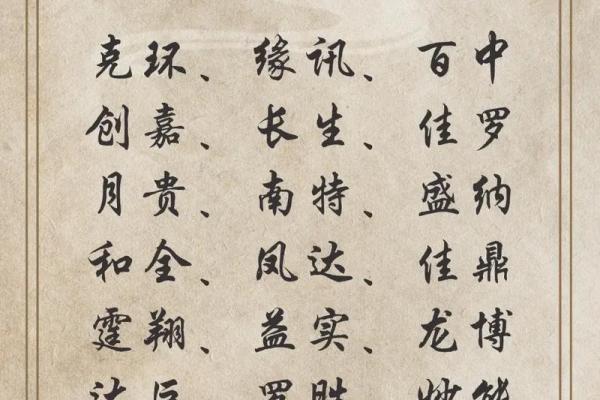 克环、缘讯、百中
创嘉、长生、佳罗
月贵、南特、盛纳
和全、凤达、佳鼎
霆翔、益实、龙博
达巨、罗胜、妙能